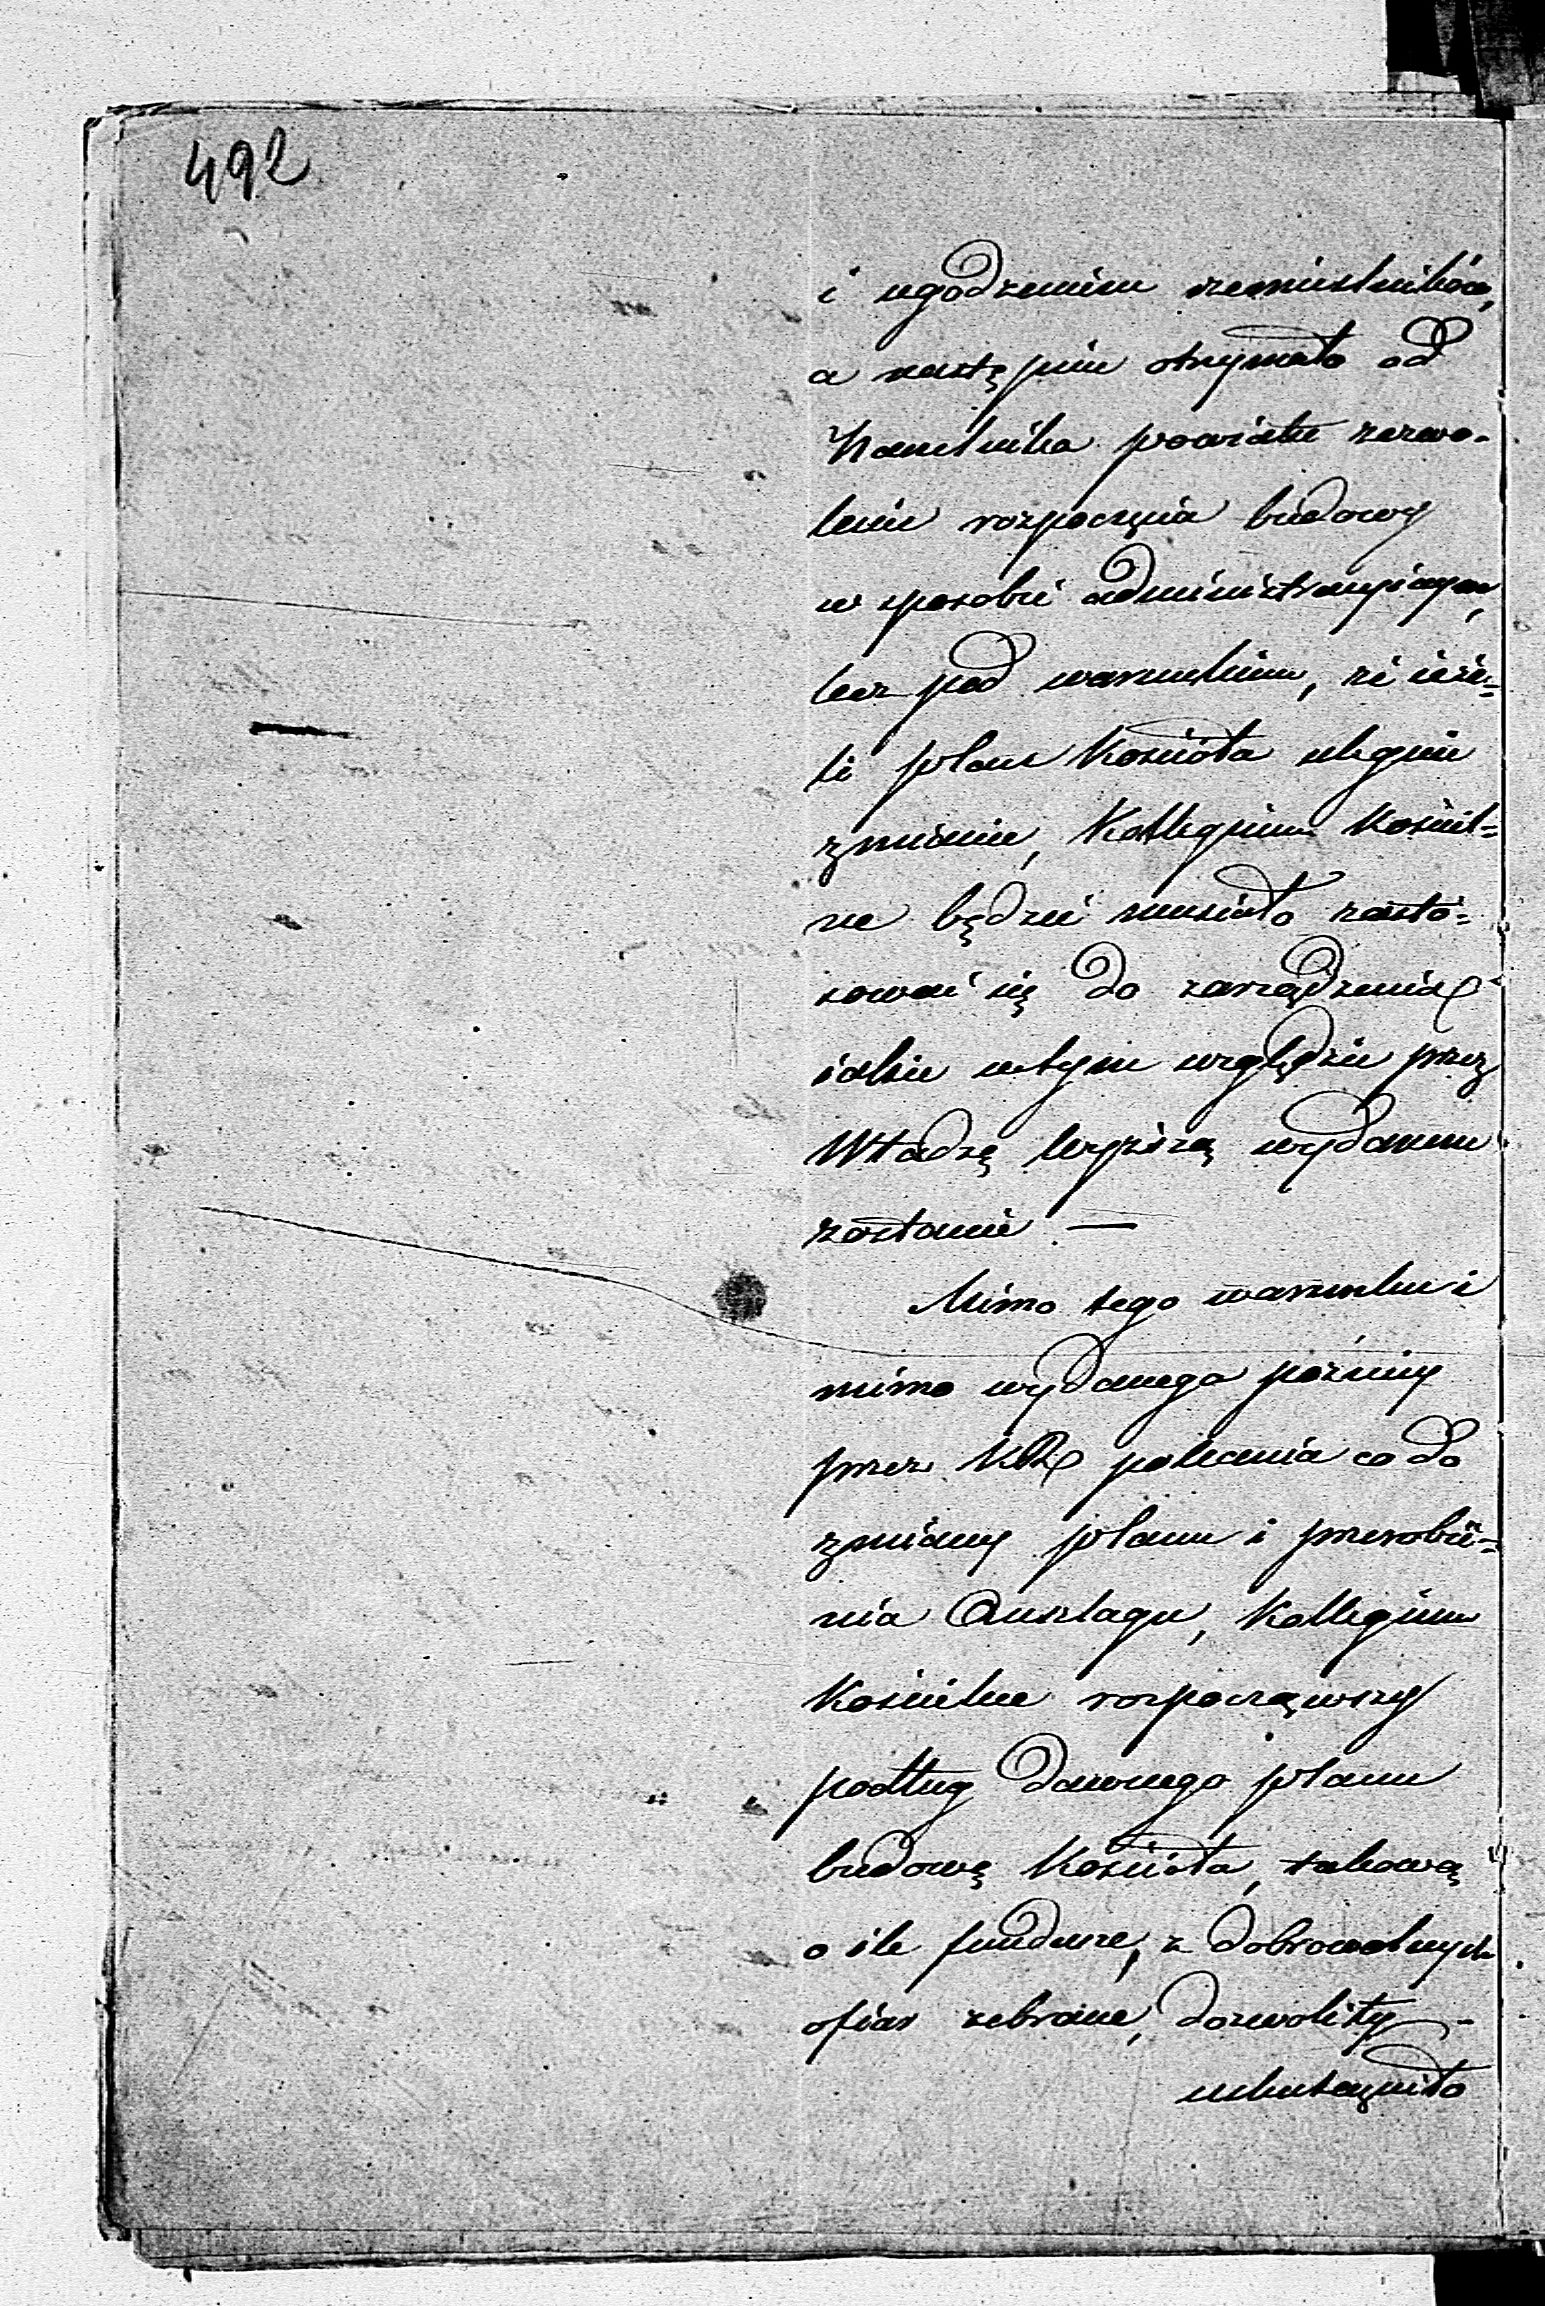 492
i ugodzeniem rzemieślników,
a następnie otrzymało od
Naczelnika powiatu zezwo-
lenie rozpoczęcia budowy
w sposobie administracyjnym,
lecz pod warunkiem, że ieże=
li plan Kościoła ulegnie
zmianie, Kollegium Kościel=
ne będzie musiało zasto=
sować się do zarządzenia
iakie w tym względzie przez
Władzę wyższą wydanem
zostanie —
Mimo tego warunku i
mimo wydanego pozniey
przez KR polecenia co do
zmiany planu i przerobie=
nia Anszlagu, Kollegium
Kościelne rozpocząwszy
podług dawnego planu
budowę Kościoła, takową
o ile fundusze, z dobrowolnych
ofiar zebrane, dozwoliły -
uskuteczniło